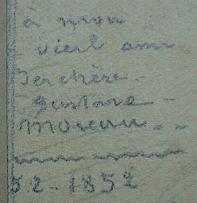 à mon
vieil ami
Berchère -
Gustave
Moreau - -
52 - 1852